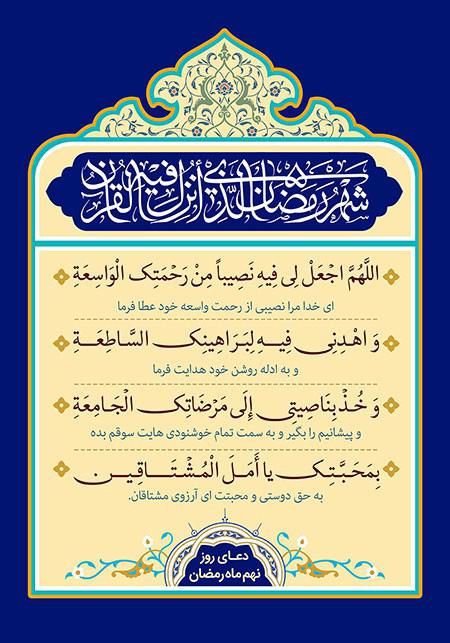 شَهْرُ رَمَضَانَ الَّذِي أُنْزِلَ فِيهِ الْقُرْآنُ
اللَّهُمَّ اجْعَلْ لِی فِیهِ نَصِیباً مِنْ رَحْمَتِکَ الْوَاسِعَةِ
ای خدا مرا نصیبی از رحمت واسعه خود عطا فرما
وَ اهْدِنِی فِیهِ لِبَرَاهِینِکَ السَّاطِعَةِ
و به ادله روشن خود هدایت فرما
وَ خُذْ بِنَاصِیَتِی إِلَی مَرْضَاتِکَ الْجَامِعَةِ
و پیشانیم را بگیر و به سمت تمام خوشنودی هایت سوقم بده
بِمَحَبَّتِکَ یا أَمَلَ الْمُشْتَاقِینَ
به حق دوستی و محبتت ای آرزوی مشتاقان.
دعای روز
نهم ماه رمضان